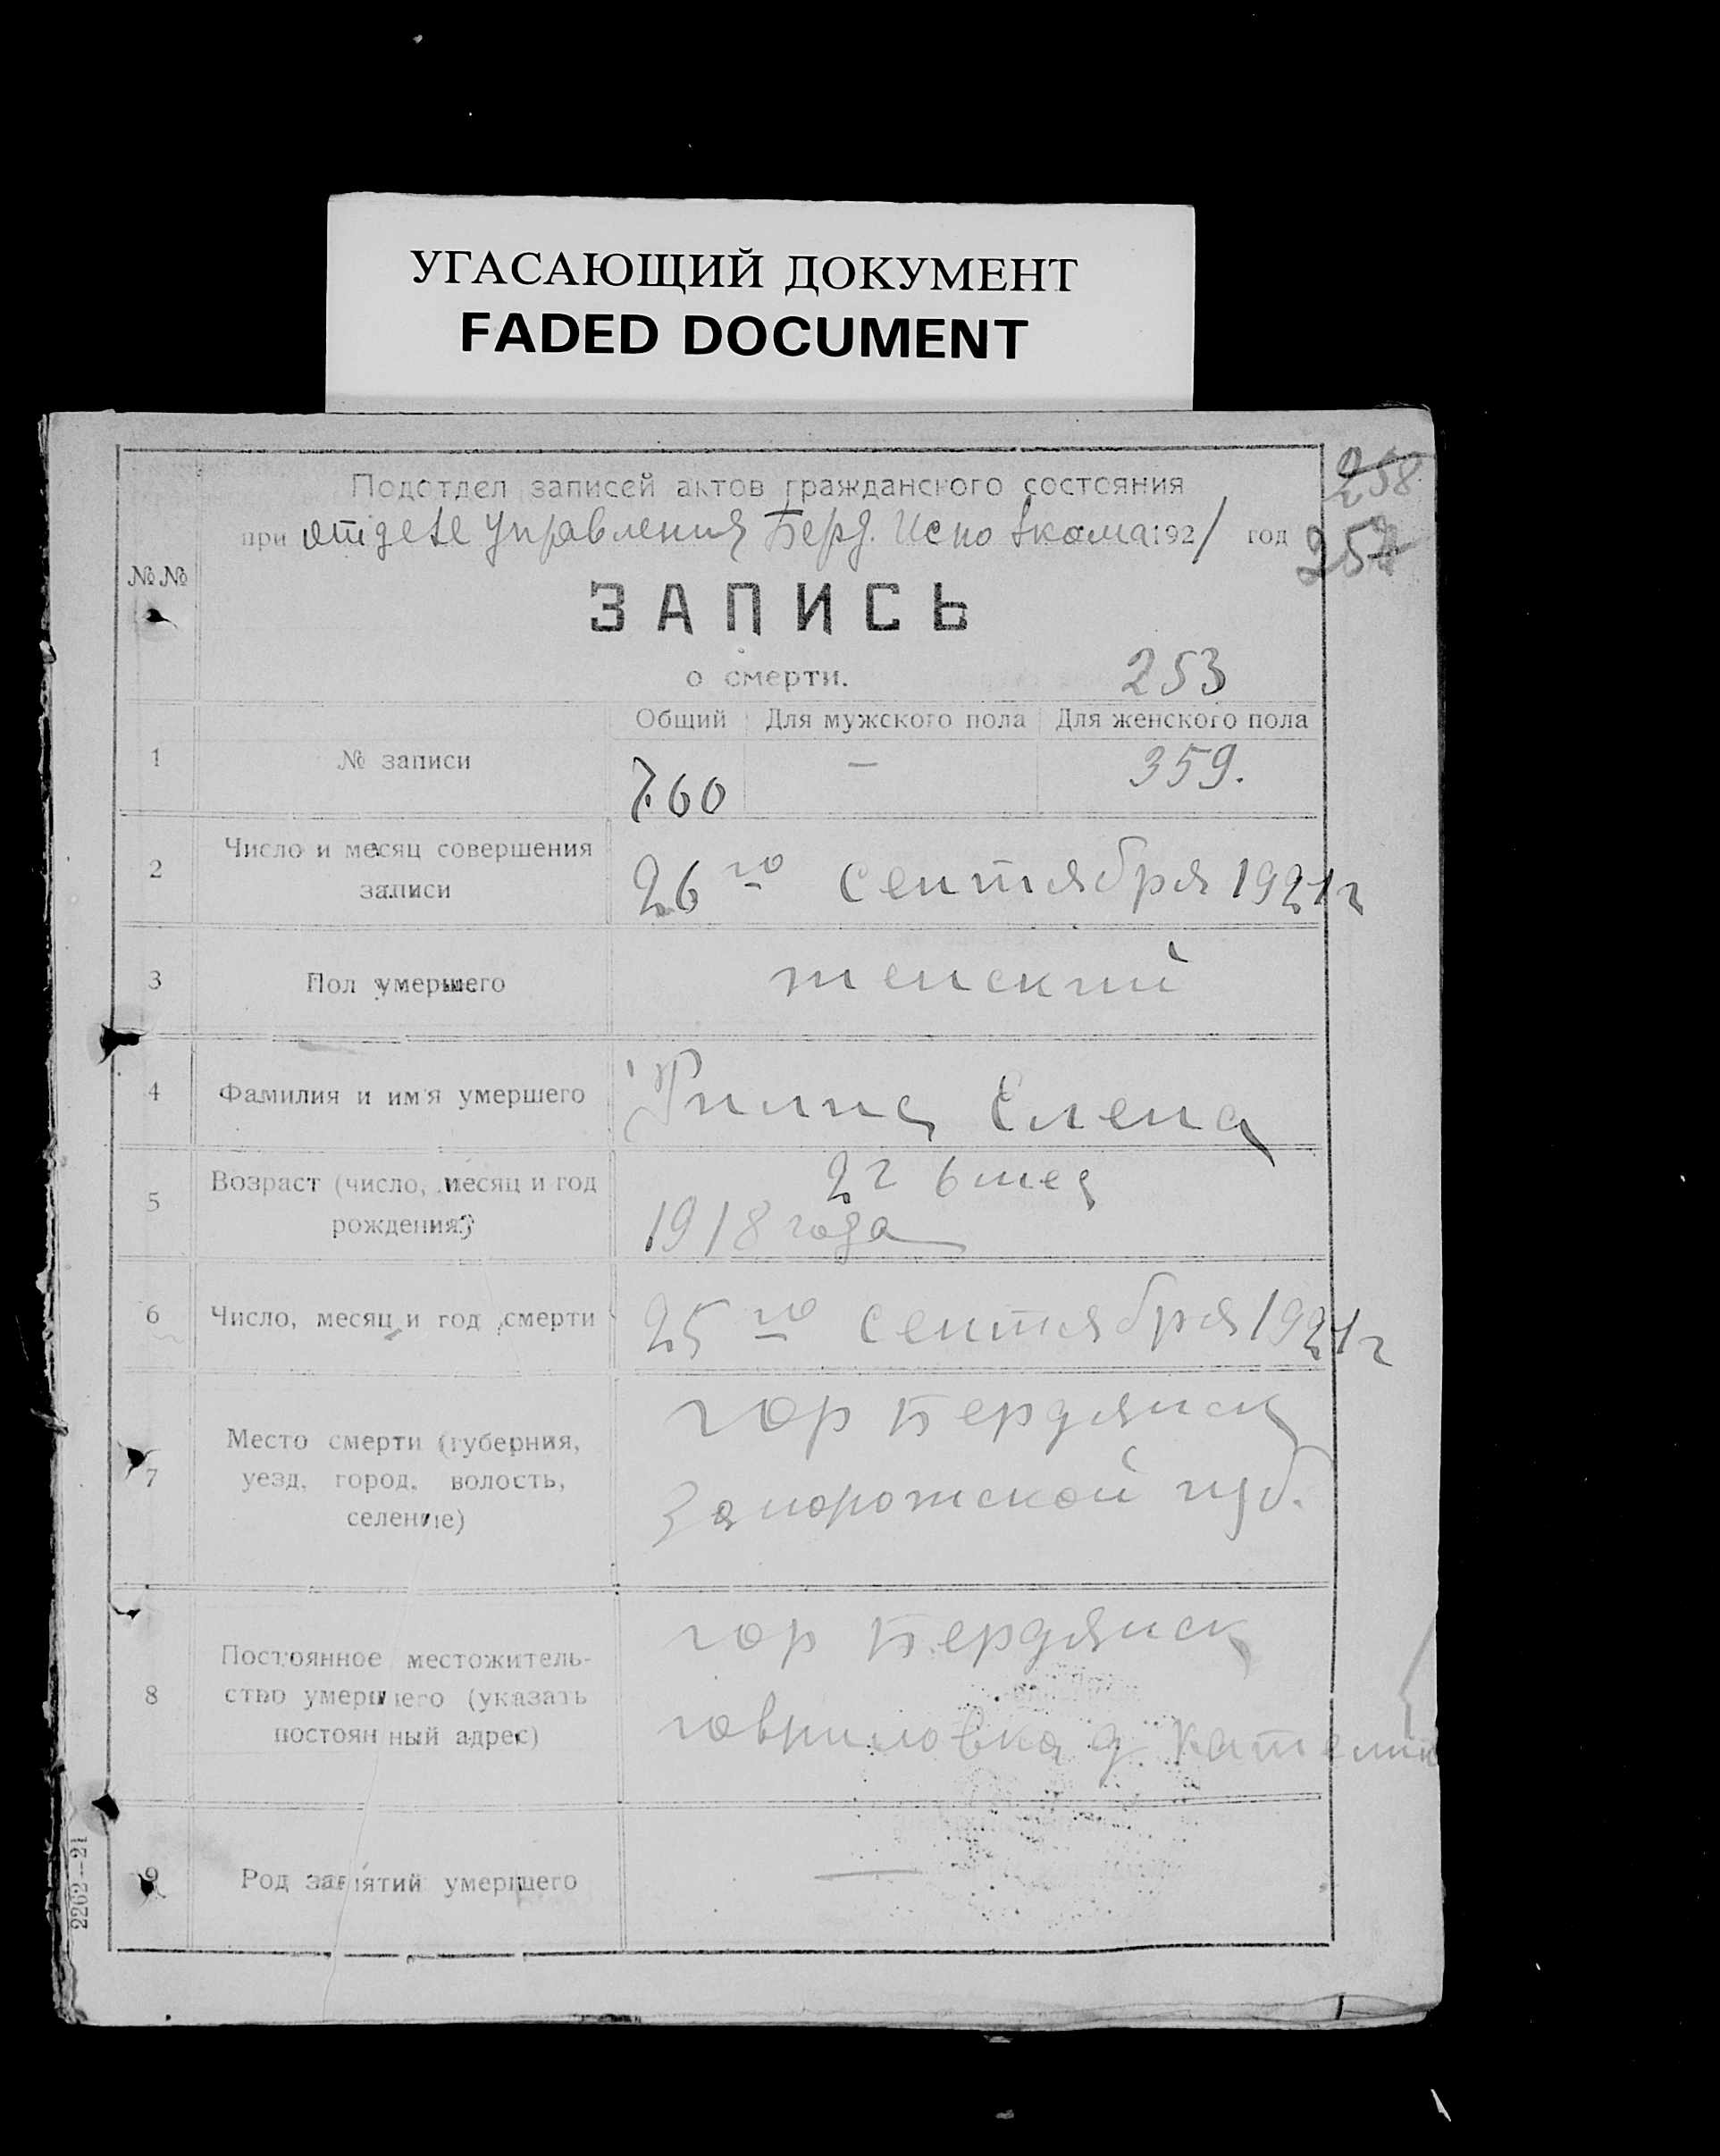 УГАСАЮЩИЙ ДОКУМЕНТ
FADED DOCUMENT
258
Подотдел записей актов гражданского состояния
при отделе Управления Берд. Исполкома 1921 год
257
№№
ЗАПИСЬ
о смерти.
253
Общий Для мужского пола Для женского пола
1 № записи 760 — 359.
2 Число и месяц совершения
записи
26го сентября 1921 г
3 Пол умершего женский
4 Фамилия и имя умершего Елена
5 Возраст (число, месяц и год
рождения)
2 г 6 мес
1918 года
6 Число, месяц и год смерти 25го сентября 1921 г
7 Место смерти (губерния,
уезд, город, волость,
селение)
гор Бердянск
Запорожской губ.
8 Постоянное местожитель-
ство умершего (указать
постоянный адрес)
гор Бердянск
гавриловка д
9 Род занятий умершего —
2262–21